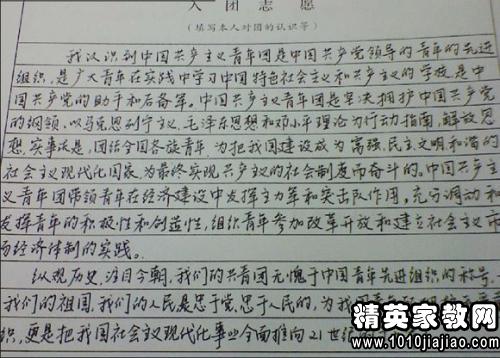 入 团 志 愿
(填写本人对团的认识等)
我认识到中国共产主义青年团是中国共产党领导的青年的先进
组织,是广大青年在实践中学习中国特色社会主义和共产主义的学校,是中
国共产党的助手和后备军。中国共产主义青年团是坚决拥护中国共产党
的纲领,以马克思列宁主义、毛泽东思想和邓小平理论为行动指南,解放思
想,实事求是,团结全国各族青年,为把我国建设成为富强、民主、文明和谐的
社会主义现代化国家,为最终实现共产主义的社会制度而奋斗的。中国共产主
义青年团带领青年在经济建设中发挥主力军和突击队作用,充分调动和
发挥青年的积极性和创造性,组织青年参加改革开放和建立社会主义市
场经济体制的实践。
纵观历史,注目今朝,我们的共青团无愧于中国青年先进组织的称号。
我们的祖国,我们的人民是忠于党,忠于人民的,为我国
织,更是把我国社会主义现代化事业全面推向21世纪
精英家教网
www.1010jiajiao.com